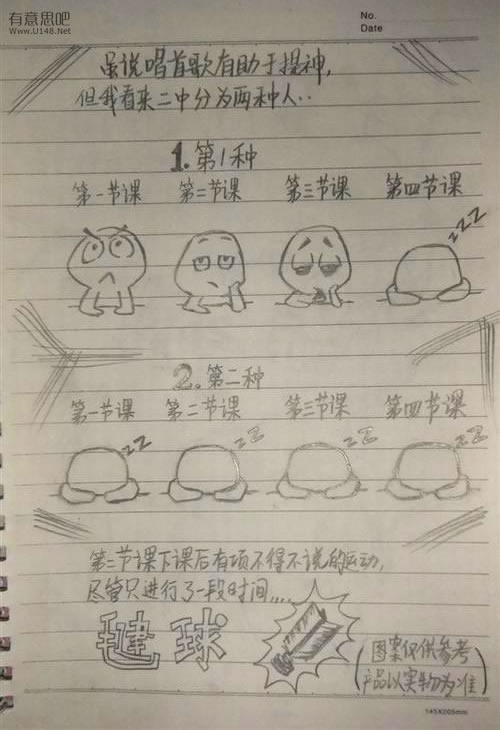 有意思吧
www.U148.Net
No.
Date
虽说唱首歌有助于提神,
但我看来二中分为两种人..
1.第1种
第一节课 第二节课 第三节课 第四节课
zzz
2.第二种
第一节课 第二节课 第三节课 第四节课
zz zz zz zz
第二节课下课后有项不得不说的运动,
尽管只进行了一段时间....
毽球
(图案仅供参考
产品以实物为准)
145X205mm